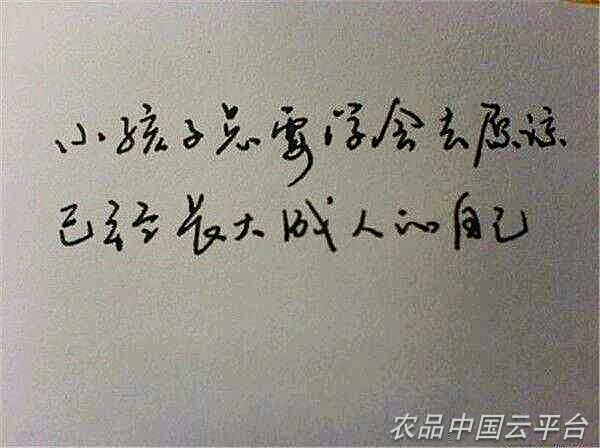 小孩子总要学会去原谅
已经长大成人的自己
农品中国云平台